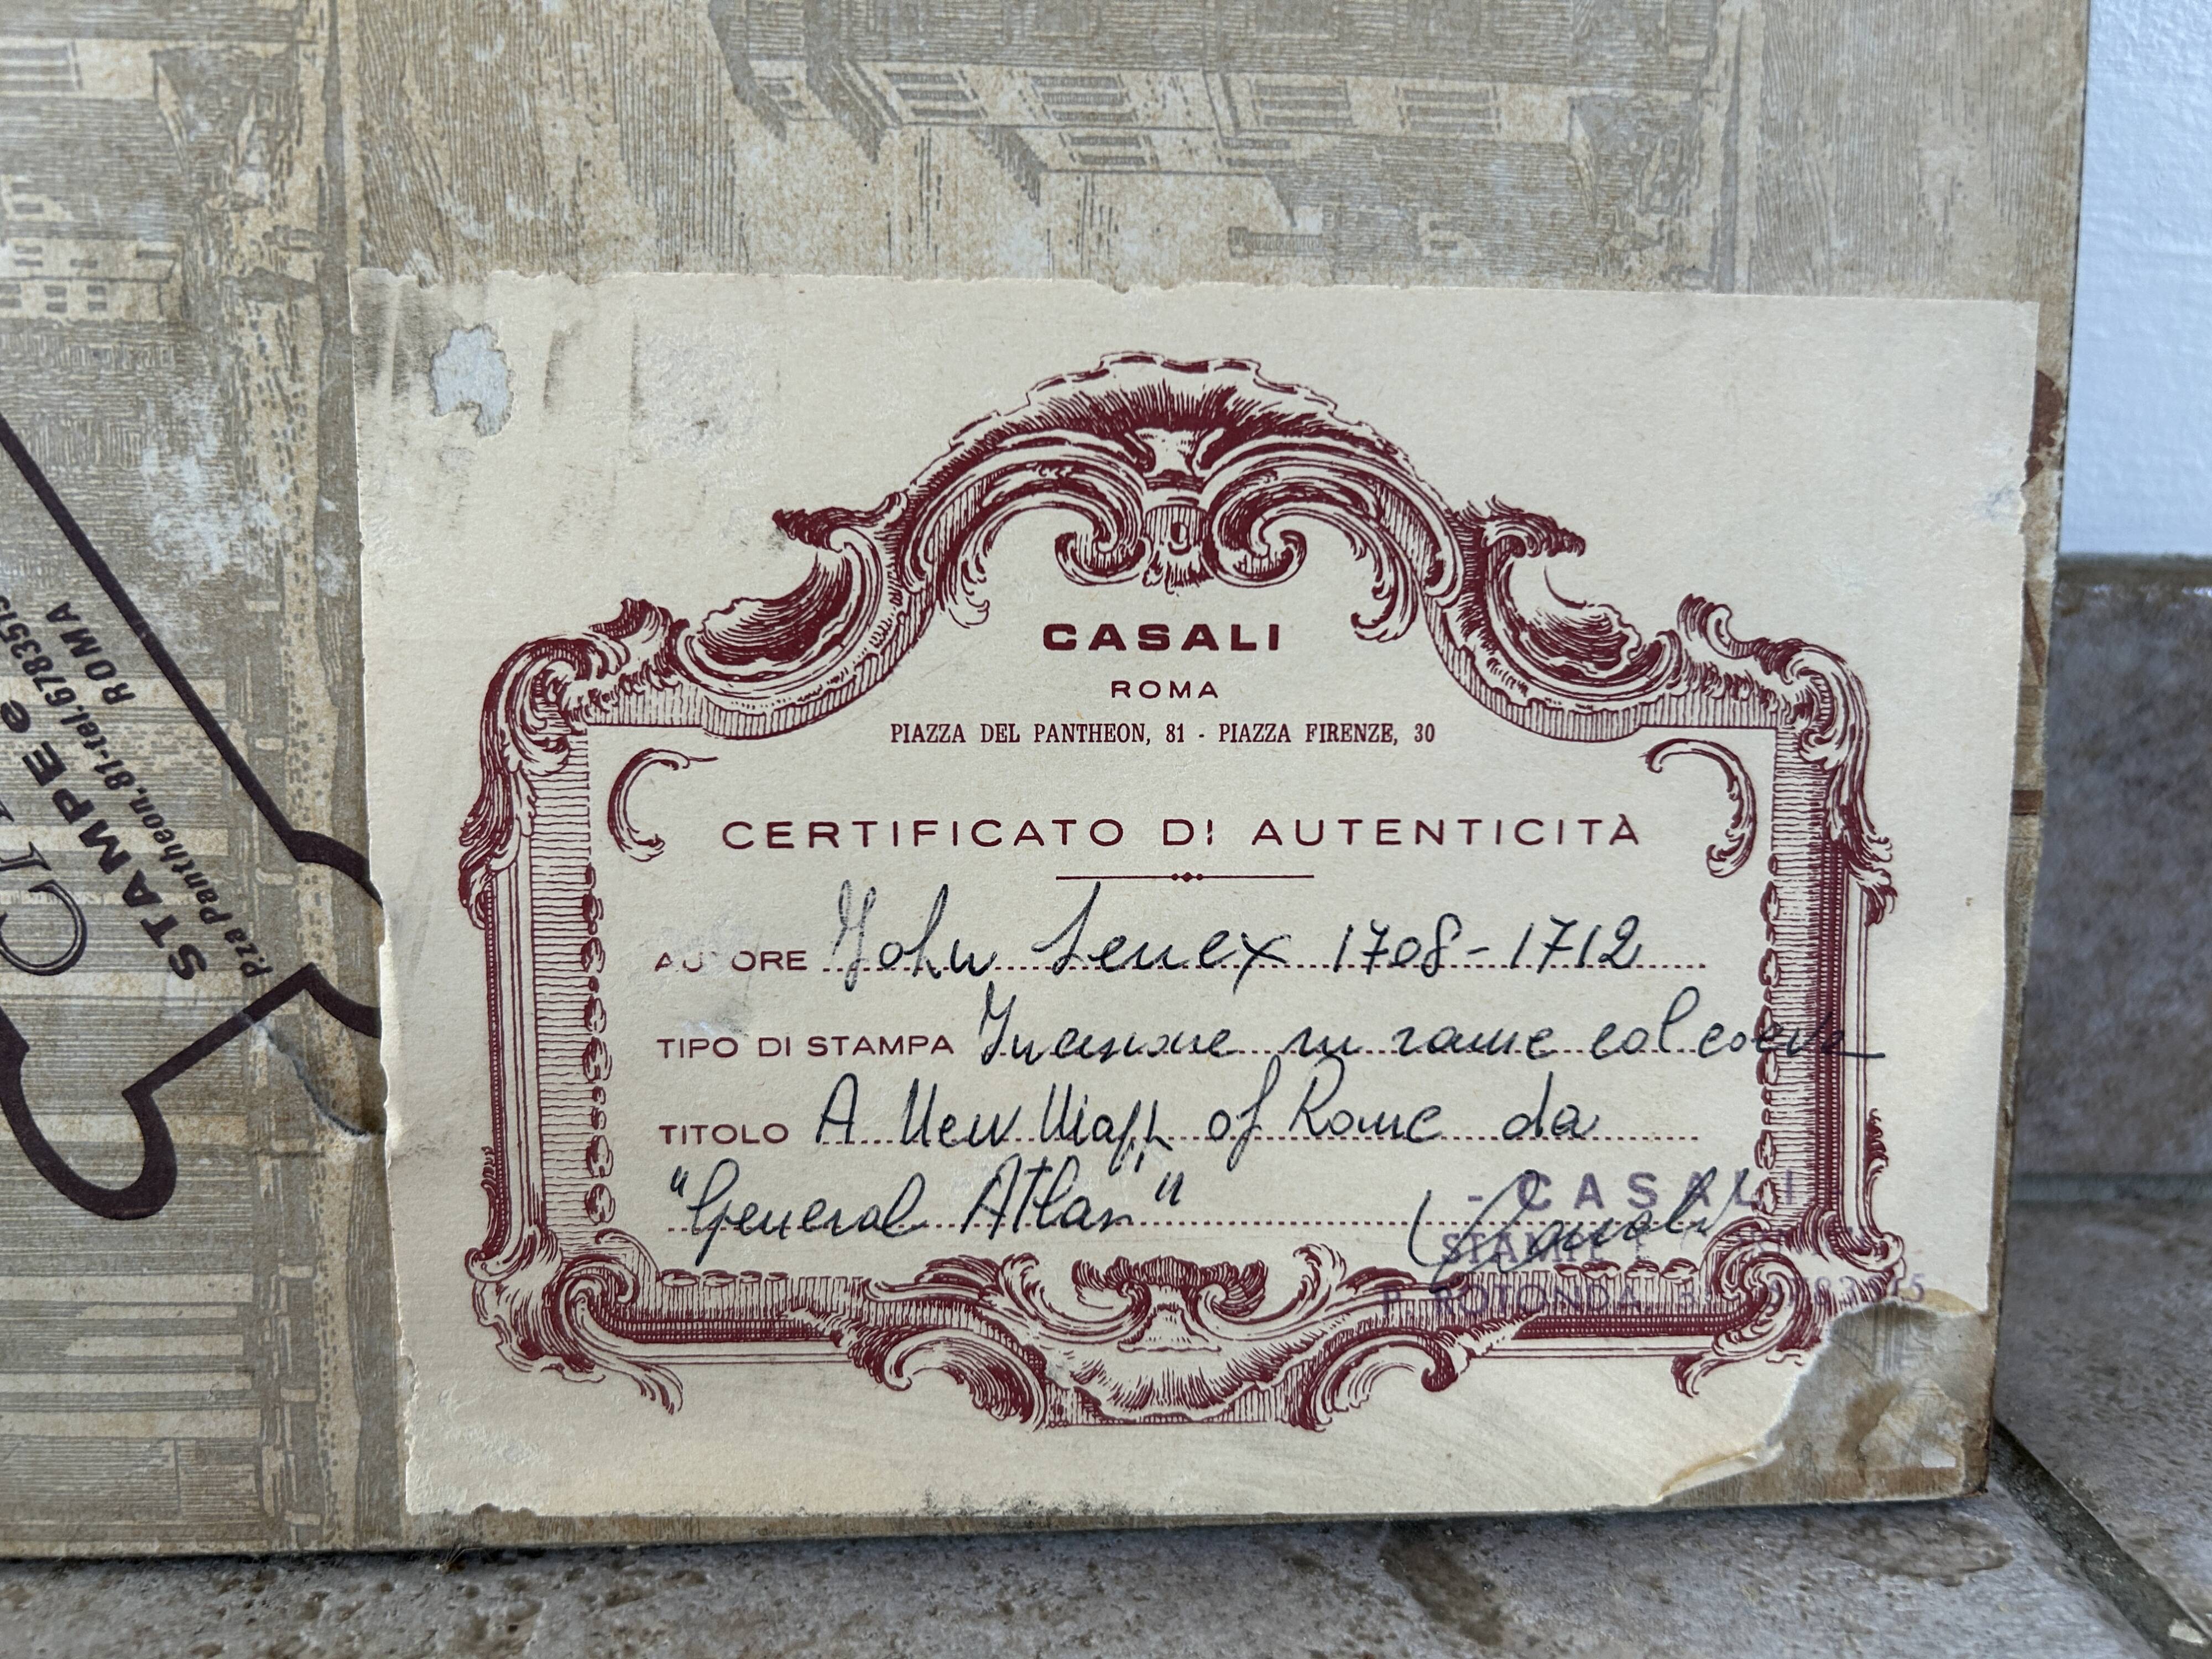 CASALI
ROMA
PIAZZA DEL PANTHEON, 81 - PIAZZA FIRENZE, 30
CERTIFICATO DI AUTENTICITÀ
AUTORE John Senex 1708-1712
TIPO DI STAMPA Incisione in rame col coeva
TITOLO A New Mapp of Rome da
"General Atlas"
- CASALI
P. ROTONDA,
STAMPE e
P.zza Pantheon, 81-tel. 678351
ROMA